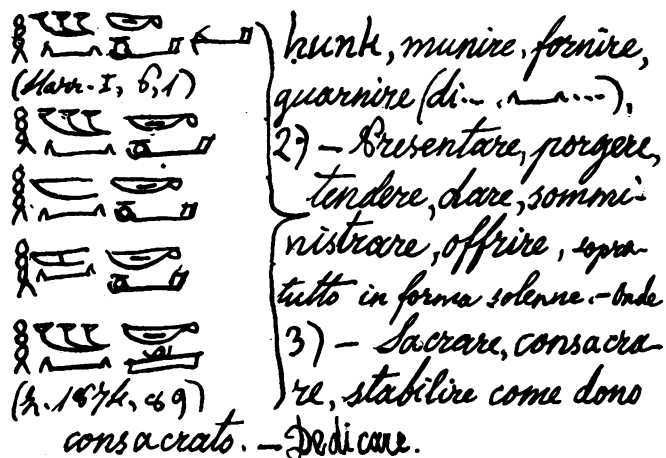 hunk, munire, fornire,
guarnire (di... ...),
2°) – Presentare, porgere,
tendere, dare, sommi-
nistrare, offrire, sopra-
tutto in forma solenne. – Onde
3) – Sacrare, consacra-
(z. 1874, 89) re, stabilire come dono
consacrato. – Dedicare.